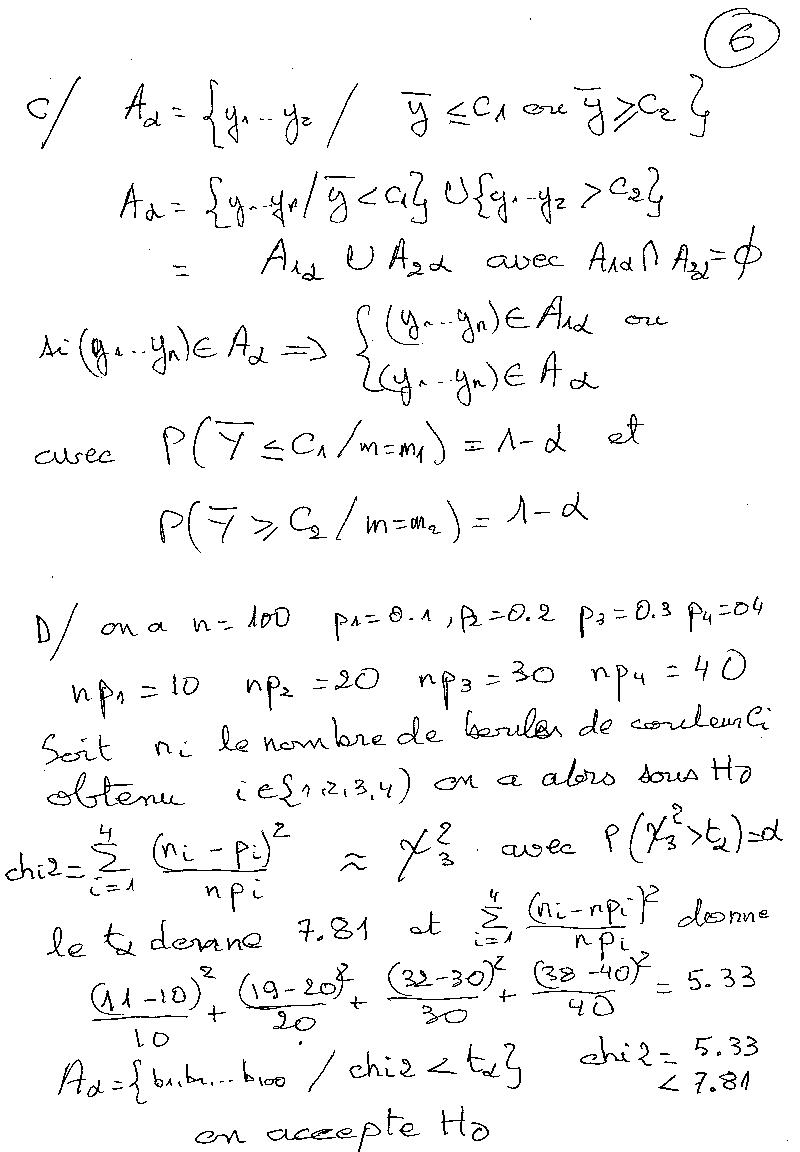 6
c/ Aα = {y1..y2 / ȳ ≤ C1 ou ȳ ≥ C2}
Aα = {y1..yn / ȳ < C1} ∪ {y1..y2 > C2}
= A1α ∪ A2α avec A1α ∩ A2α = ϕ
si (y1..yn) ∈ Aα ⇒ { (y1..yn) ∈ A1α ou
(y1..yn) ∈ Aα
avec P(Ȳ ≤ C1 / m=m1) = 1-α et
P(Ȳ ≥ C2 / m=m2) = 1-α
D/ on a n= 100 p1=0.1, p2=0.2 p3=0.3 p4=04
np1 = 10 np2 = 20 np3 = 30 np4 = 40
Soit ni le nombre de boules de couleur Ci
obtenu i∈{1,2,3,4) on a alors sous H0
chi2 = Σ_{i=1}^{4} (ni - pi)² / npi ≈ χ²_3 . avec P(χ²_3 > tα) = α
le tα donne 7.81 et Σ_{i=1}^{4} (ni - npi)² / npi donne
(11-10)²/10 + (19-20)²/20 + (32-30)²/30 + (38-40)²/40 = 5.33
Aα = {b1,b2...b100 / chi2 < tα} chi2 = 5.33
< 7.81
on accepte H0